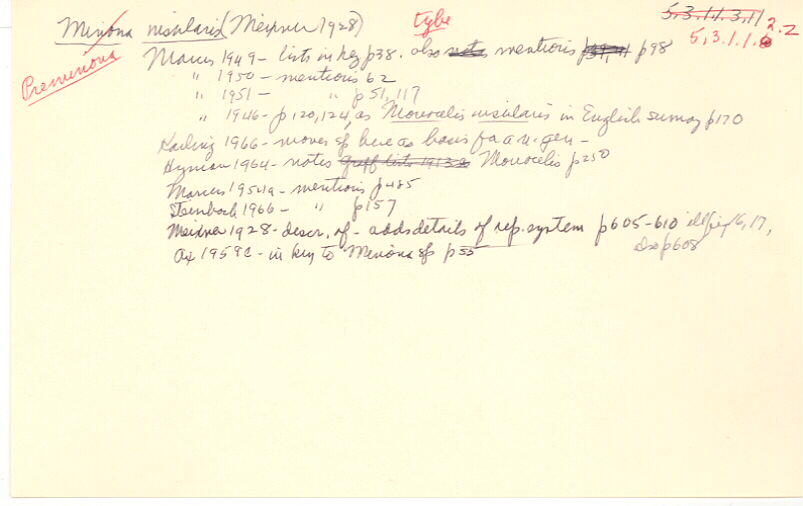 Minona insularis (Meixner 1928) type 5.3.11.3.11 2.2
Preminona 5.3.1.1.
Marcus 1949 - lists in key p38. also notes mentions p39,41 p98
" 1950 - mentions 62
" 1951 - " p 51, 117
" 1946 - p 120, 124, as Monocelis insularis in English summary p170
Karling 1966 - moves sp here as basis for a n. gen -
Hyman 1964 - notes Graff lists 1913 Monocelis p250
Marcus 1954a - mentions p485
Steinbock 1966 - " p157
Meixner 1928 - descr. of - adds details of rep. system p605-610 fig 16, 17,
Ax 1959c - in key to Minona sp p55 p608